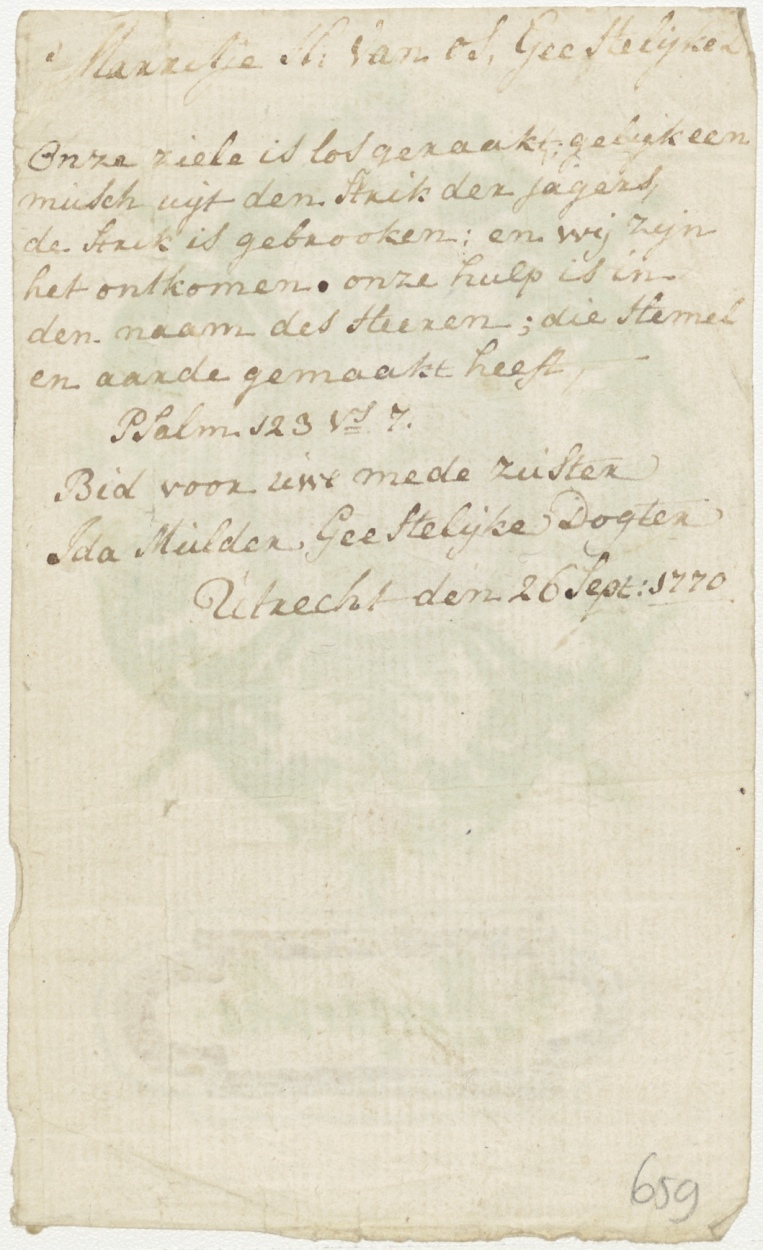 van os, Geestelijke
Onze ziele is los geraakt; gelijk een
musch uijt den strik der jagers,
de strik is gebrooken: en wij zijn
het ontkomen. onze hulp is in
den naam des Heeren; die Hemel
en aarde gemaakt heeft,
Psalm 123 vs 7.
Bid voor uwe mede zuster
Ida Mulder Geestelijke Dogter
Utrecht den 26 Sept: 1770
659